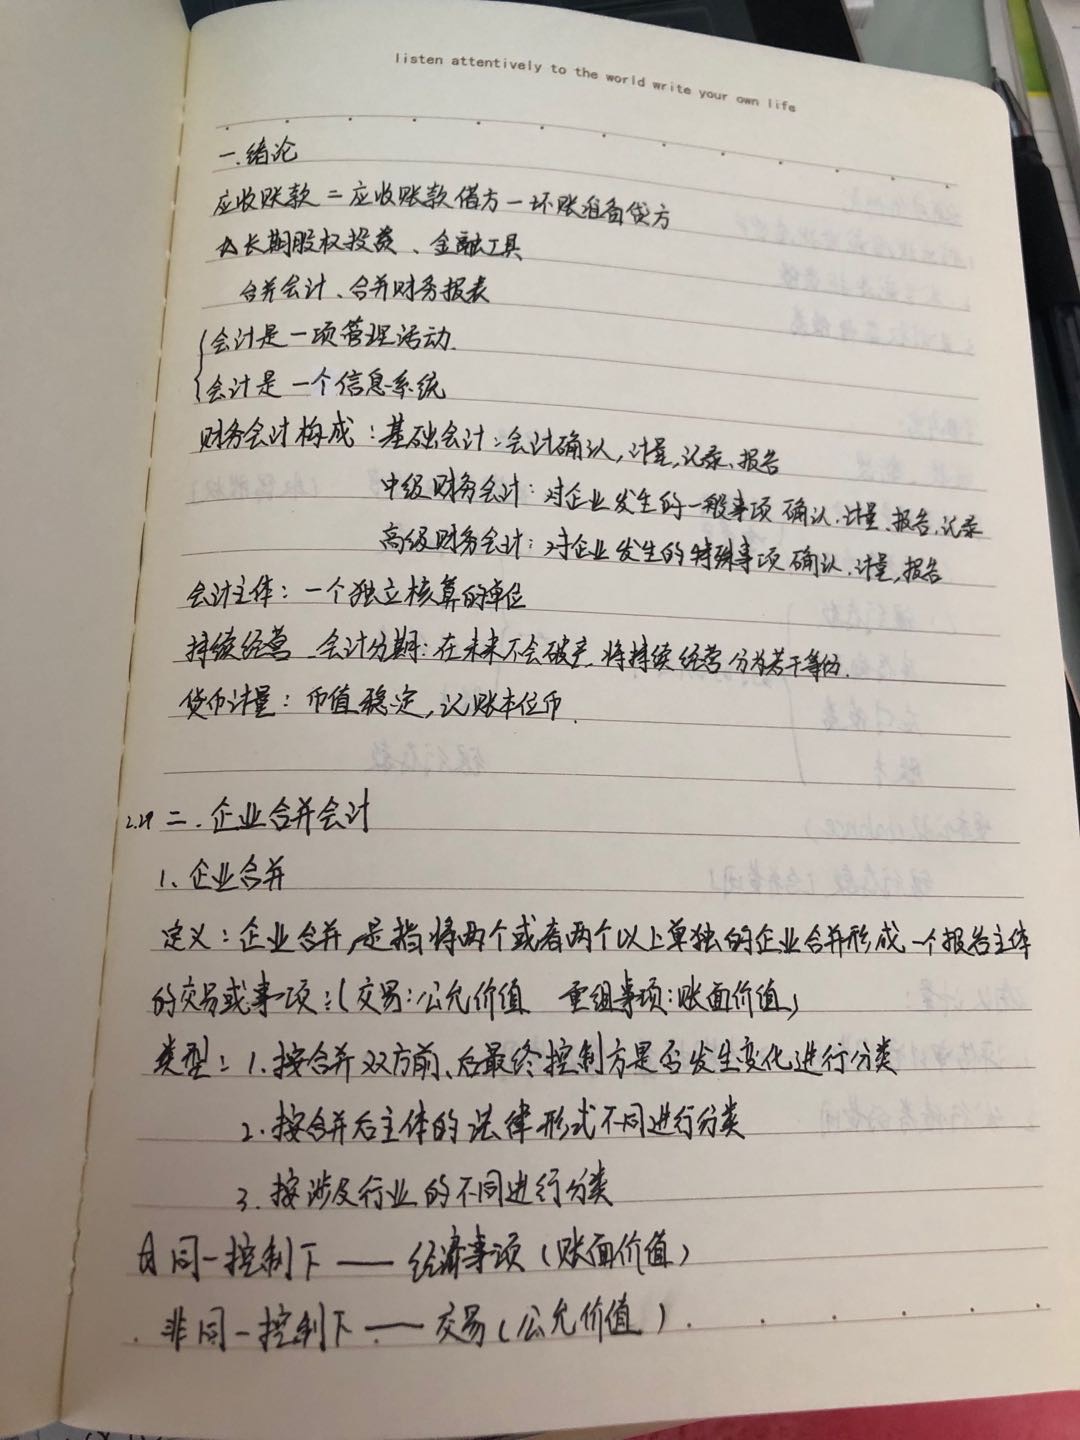 listen attentively to the world write your own life
一.绪论
应收账款 = 应收账款借方 - 坏账准备贷方
长期股权投资、金融工具
合并会计、合并财务报表
会计是一项管理活动.
会计是一个信息系统
财务会计构成:基础会计:会计确认,计量,记录、报告
中级财务会计:对企业发生的一般事项 确认.计量、报告.记录
高级财务会计:对企业发生的特殊事项 确认.计量,报告
会计主体:一个独立核算的单位
持续经营 会计分期:在未来不会破产.将持续经营分为若干等份.
货币计量:币值稳定,记账本位币.
2.29 二.企业合并会计
1、企业合并
定义:企业合并,是指将两个或者两个以上单独的企业合并形成一个报告主体
的交易或事项:(交易:公允价值 重组事项:账面价值)
类型:1.按合并双方前、后最终控制方是否发生变化进行分类
2.按合并后主体的法律形式不同进行分类
3.按涉及行业的不同进行分类
同一控制下 —— 经济事项(账面价值)
非同一控制下 —— 交易(公允价值)